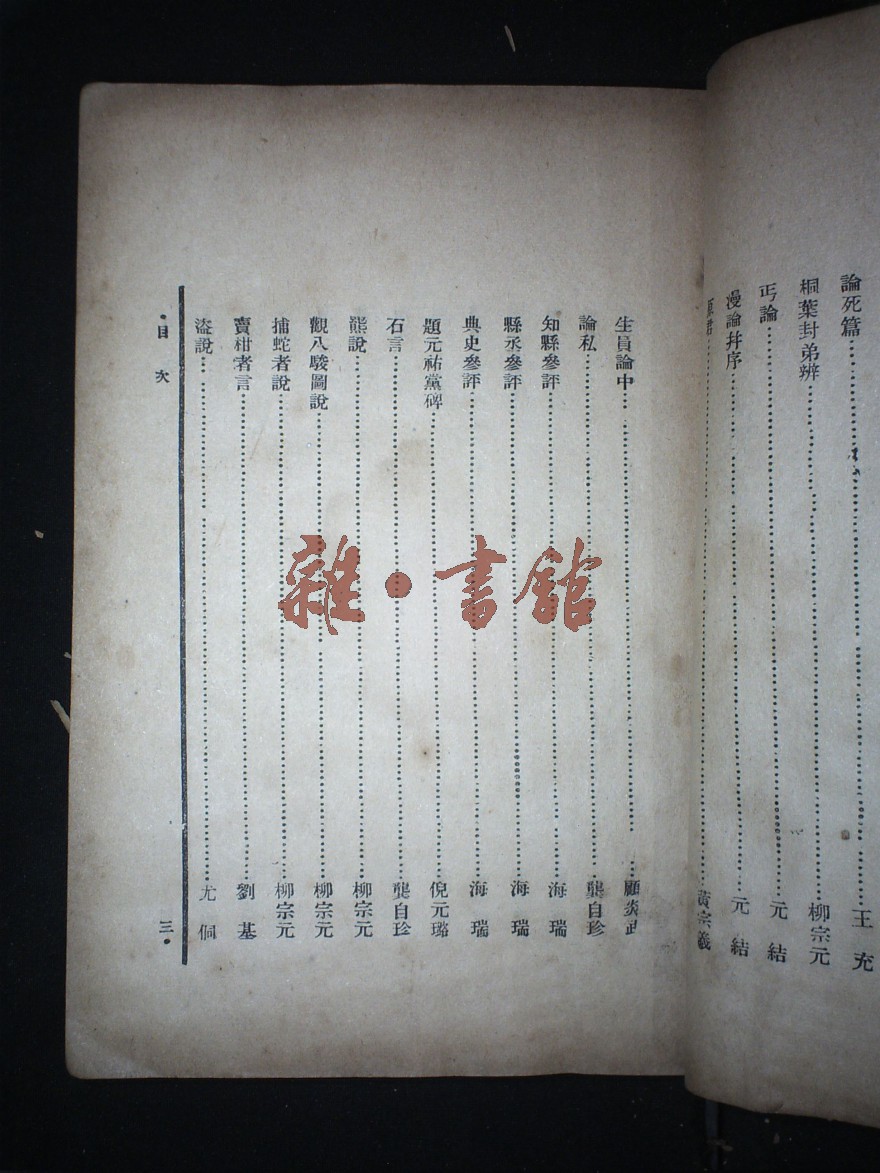 論死篇 王充
桐葉封弟辨 柳宗元
丐論 元結
漫論幷序 元結
原君 黃宗羲
生員論中 顧炎武
論私 龔自珍
知縣參評 海瑞
縣丞參評 海瑞
典史參評 海瑞
題元祐黨碑 倪元璐
石言 龔自珍
熊說 柳宗元
觀八駿圖說 柳宗元
捕蛇者說 柳宗元
賣柑者言 劉基
盜說 尤侗
目次 三
雜·書館